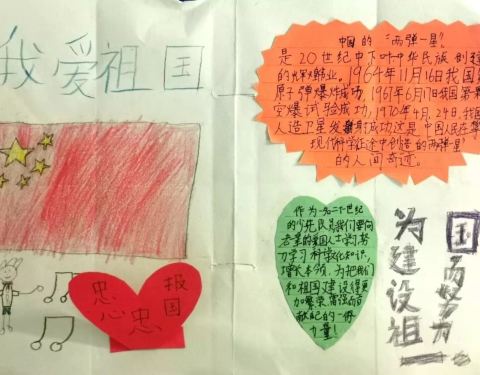 我爱祖国
中国的"两弹一星"
是20世纪中下叶中华民族创建
的辉煌伟业。1964年11月16日我国第
原子弹爆炸成功，1967年6月17日我国第
空爆试验成功，1970年4月.24日.我国
人造卫星发射成功这是中国人民在攀
现代科学征途中创造的"两弹星"
的人间奇迹。
作为一名二十一世纪
的少先队员我们要向
老一辈的爱国人士学习努
力学习科学文化知识，
增长本领，为把我们
和祖国建设得更
加繁荣富强而贡
献自己的一份
力量！
报国
忠心
忠
为建设祖
国而努力